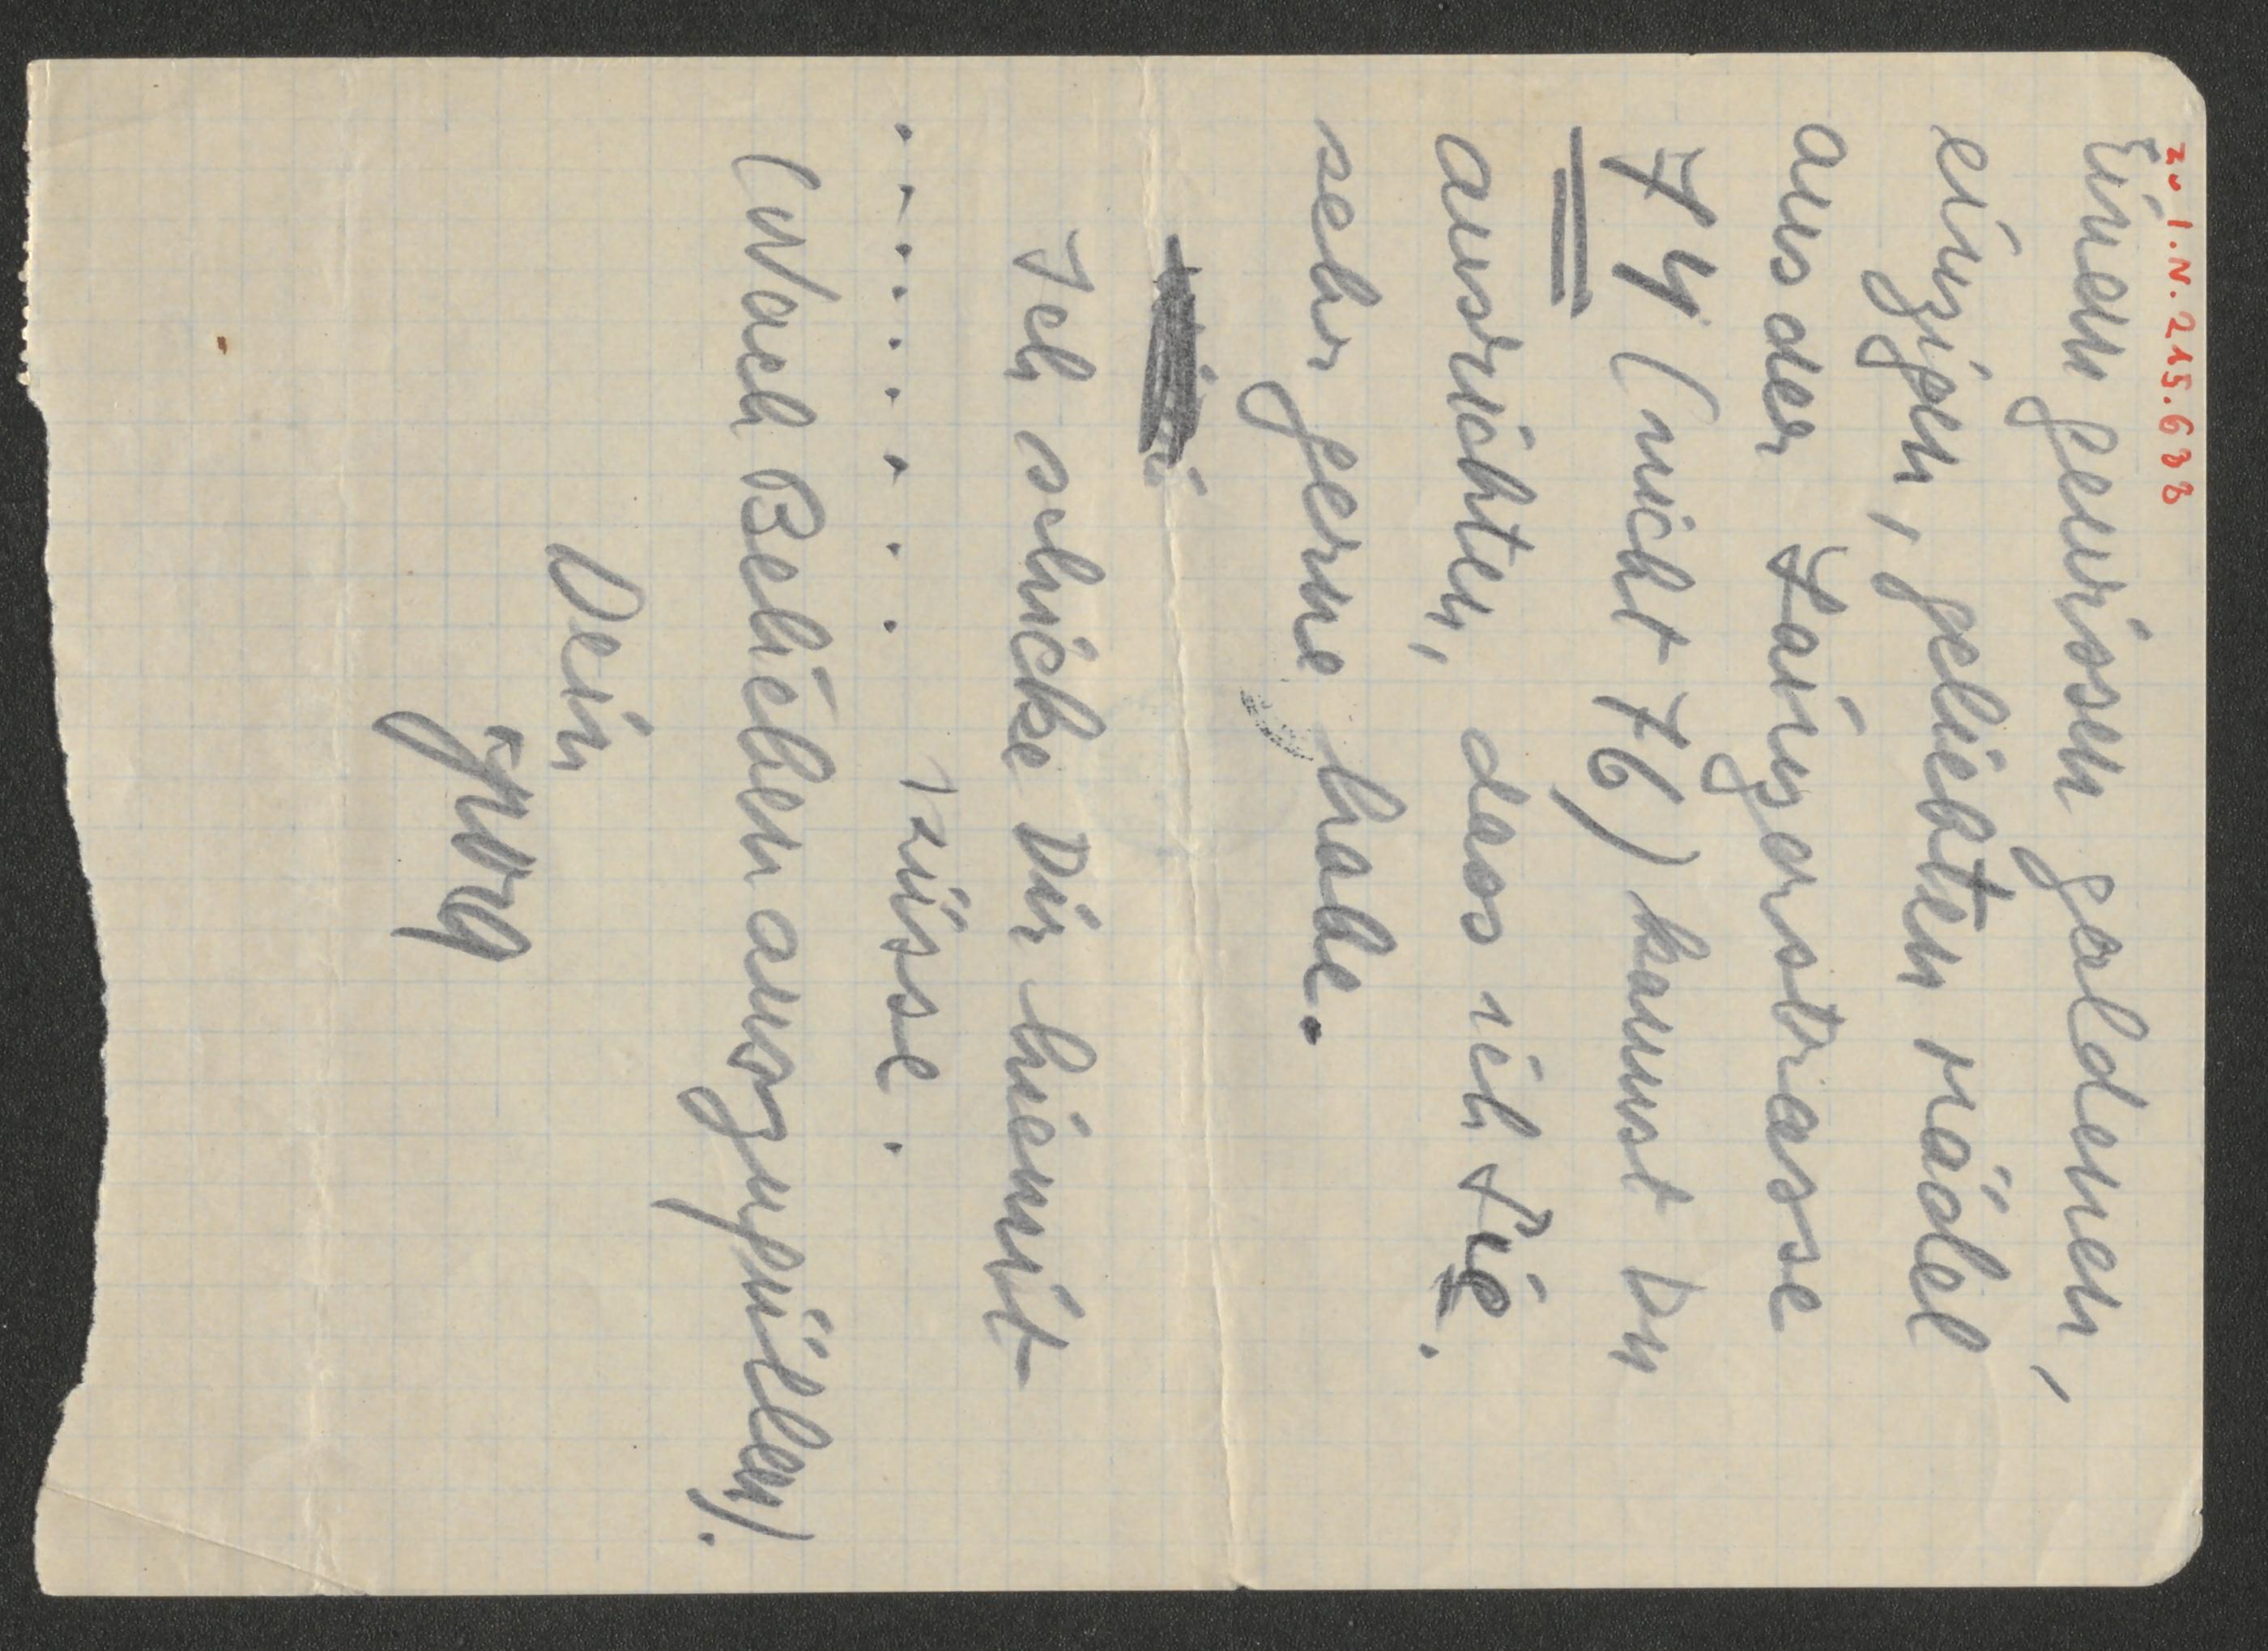 zu I.N. 215.688
Einem gewissen goldenen,
einzigen, geliebten Mädel
aus der Lainzerstrasse
74 (nicht 76) kannst Du
ausrichten, dass ich Sie.
sehr gerne habe.
Ich schicke Dir hiemit
. . . . . . . . . Küsse.
(Nach Belieben auszupüllen).
Dein
Jura